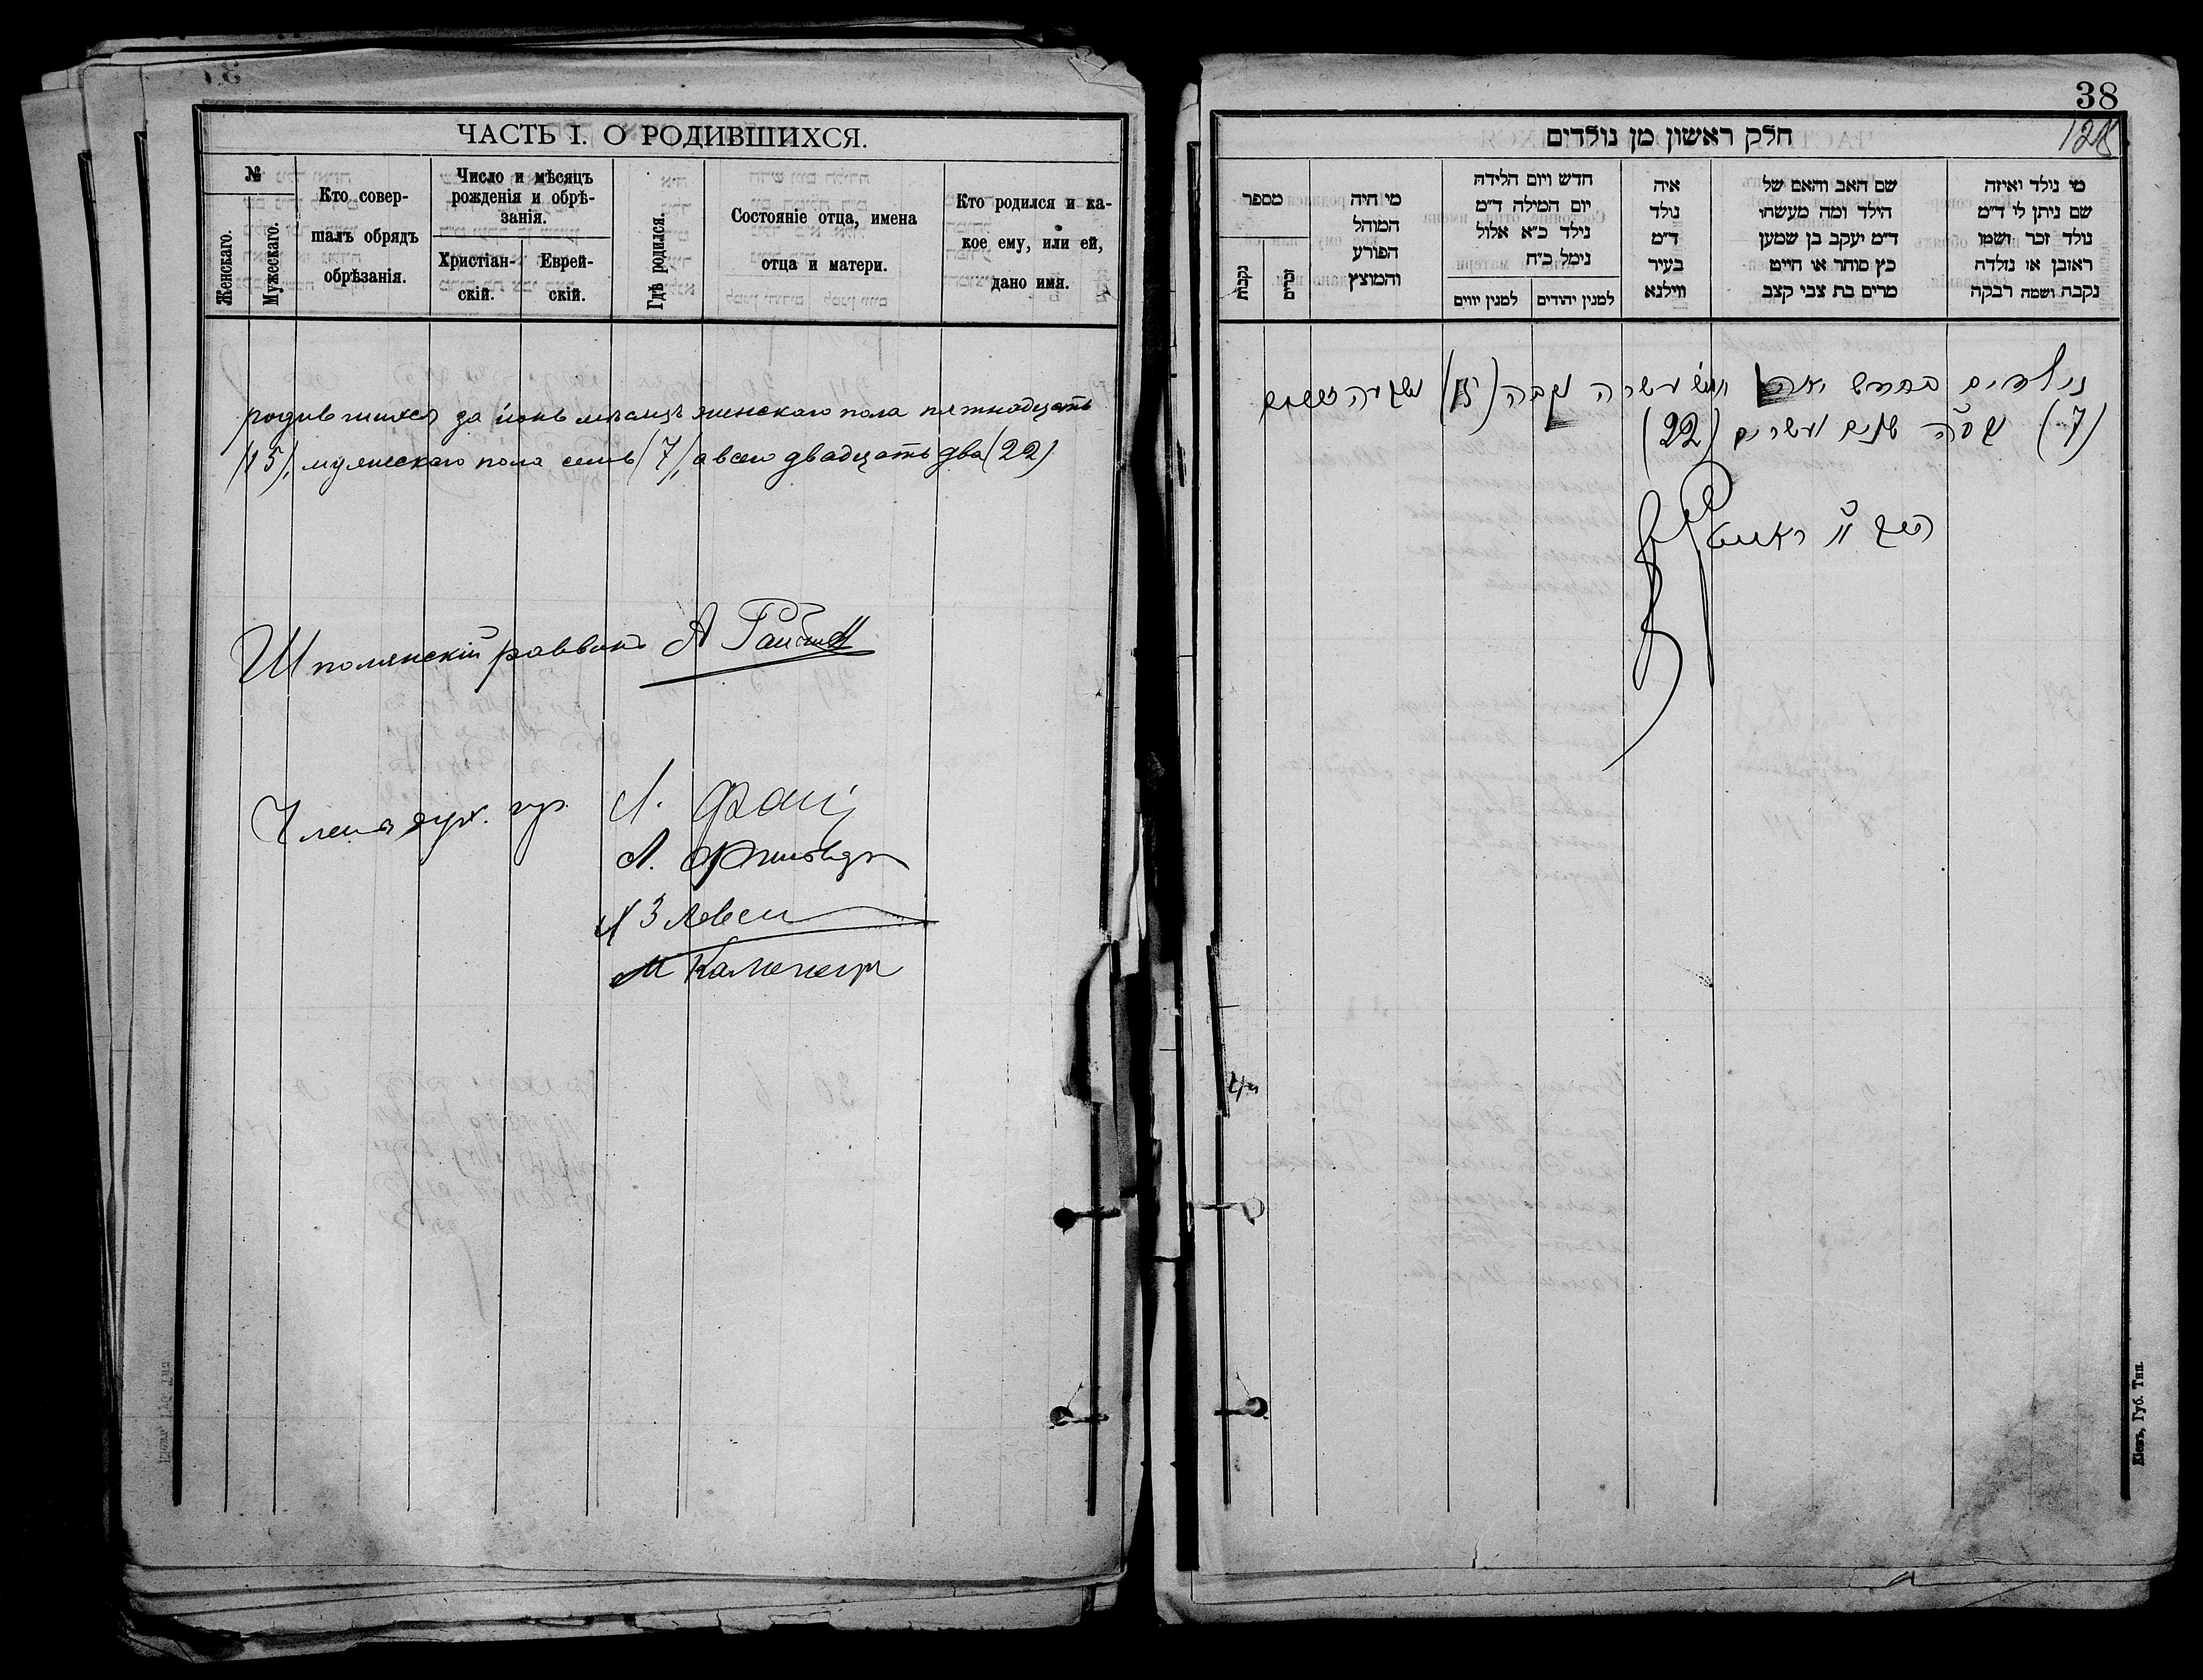 ЧАСТЬ I. О РОДИВШИХСЯ.
№
Женскаго.
Мужескаго.
Кто совер-
шалъ обрядъ
обрѣзанія.
Число и мѣсяцъ
рожденія и обрѣ-
занія.
Христіан-
скій.
Еврей-
скій.
Гдѣ родился.
Состояніе отца, имена
отца и матери.
Кто родился и ка-
кое ему, или ей,
дано имя.
родившихся за іюнь мѣсяцъ женскаго пола пятнадцать
(15), мужескаго пола семь (7), а всего двадцать два (22)
Шполянскій раввинъ А
Члены дух. пр. Л.
Л.
М
38
128
חלק ראשון מן נולדים
מספר
נקבות
זכרים
מי היה
המוהל
הפורע
והמוצץ
חדש ויום הלידה
יום המילה ד״מ
נילד כ״א אלול
נימל כ״ח
למנין יווים
למנין יהודים
איה
נולד
ד״מ
בעיר
ווילנא
שם האב והאם של
הילד ומה מעשהו
ד״מ יעקב בן שמען
כץ סוחר או חייט
מרים בת צבי קצב
מי נולד ואיזה
שם ניתן לו ד״מ
נולד זכר ושמו
ראובן או נולדה
נקבה ושמה רבקה
נולדים בחדש עשרה נקבה (15)
(7) שנים ועשרים (22)
Кіевъ, Губ. Тип.